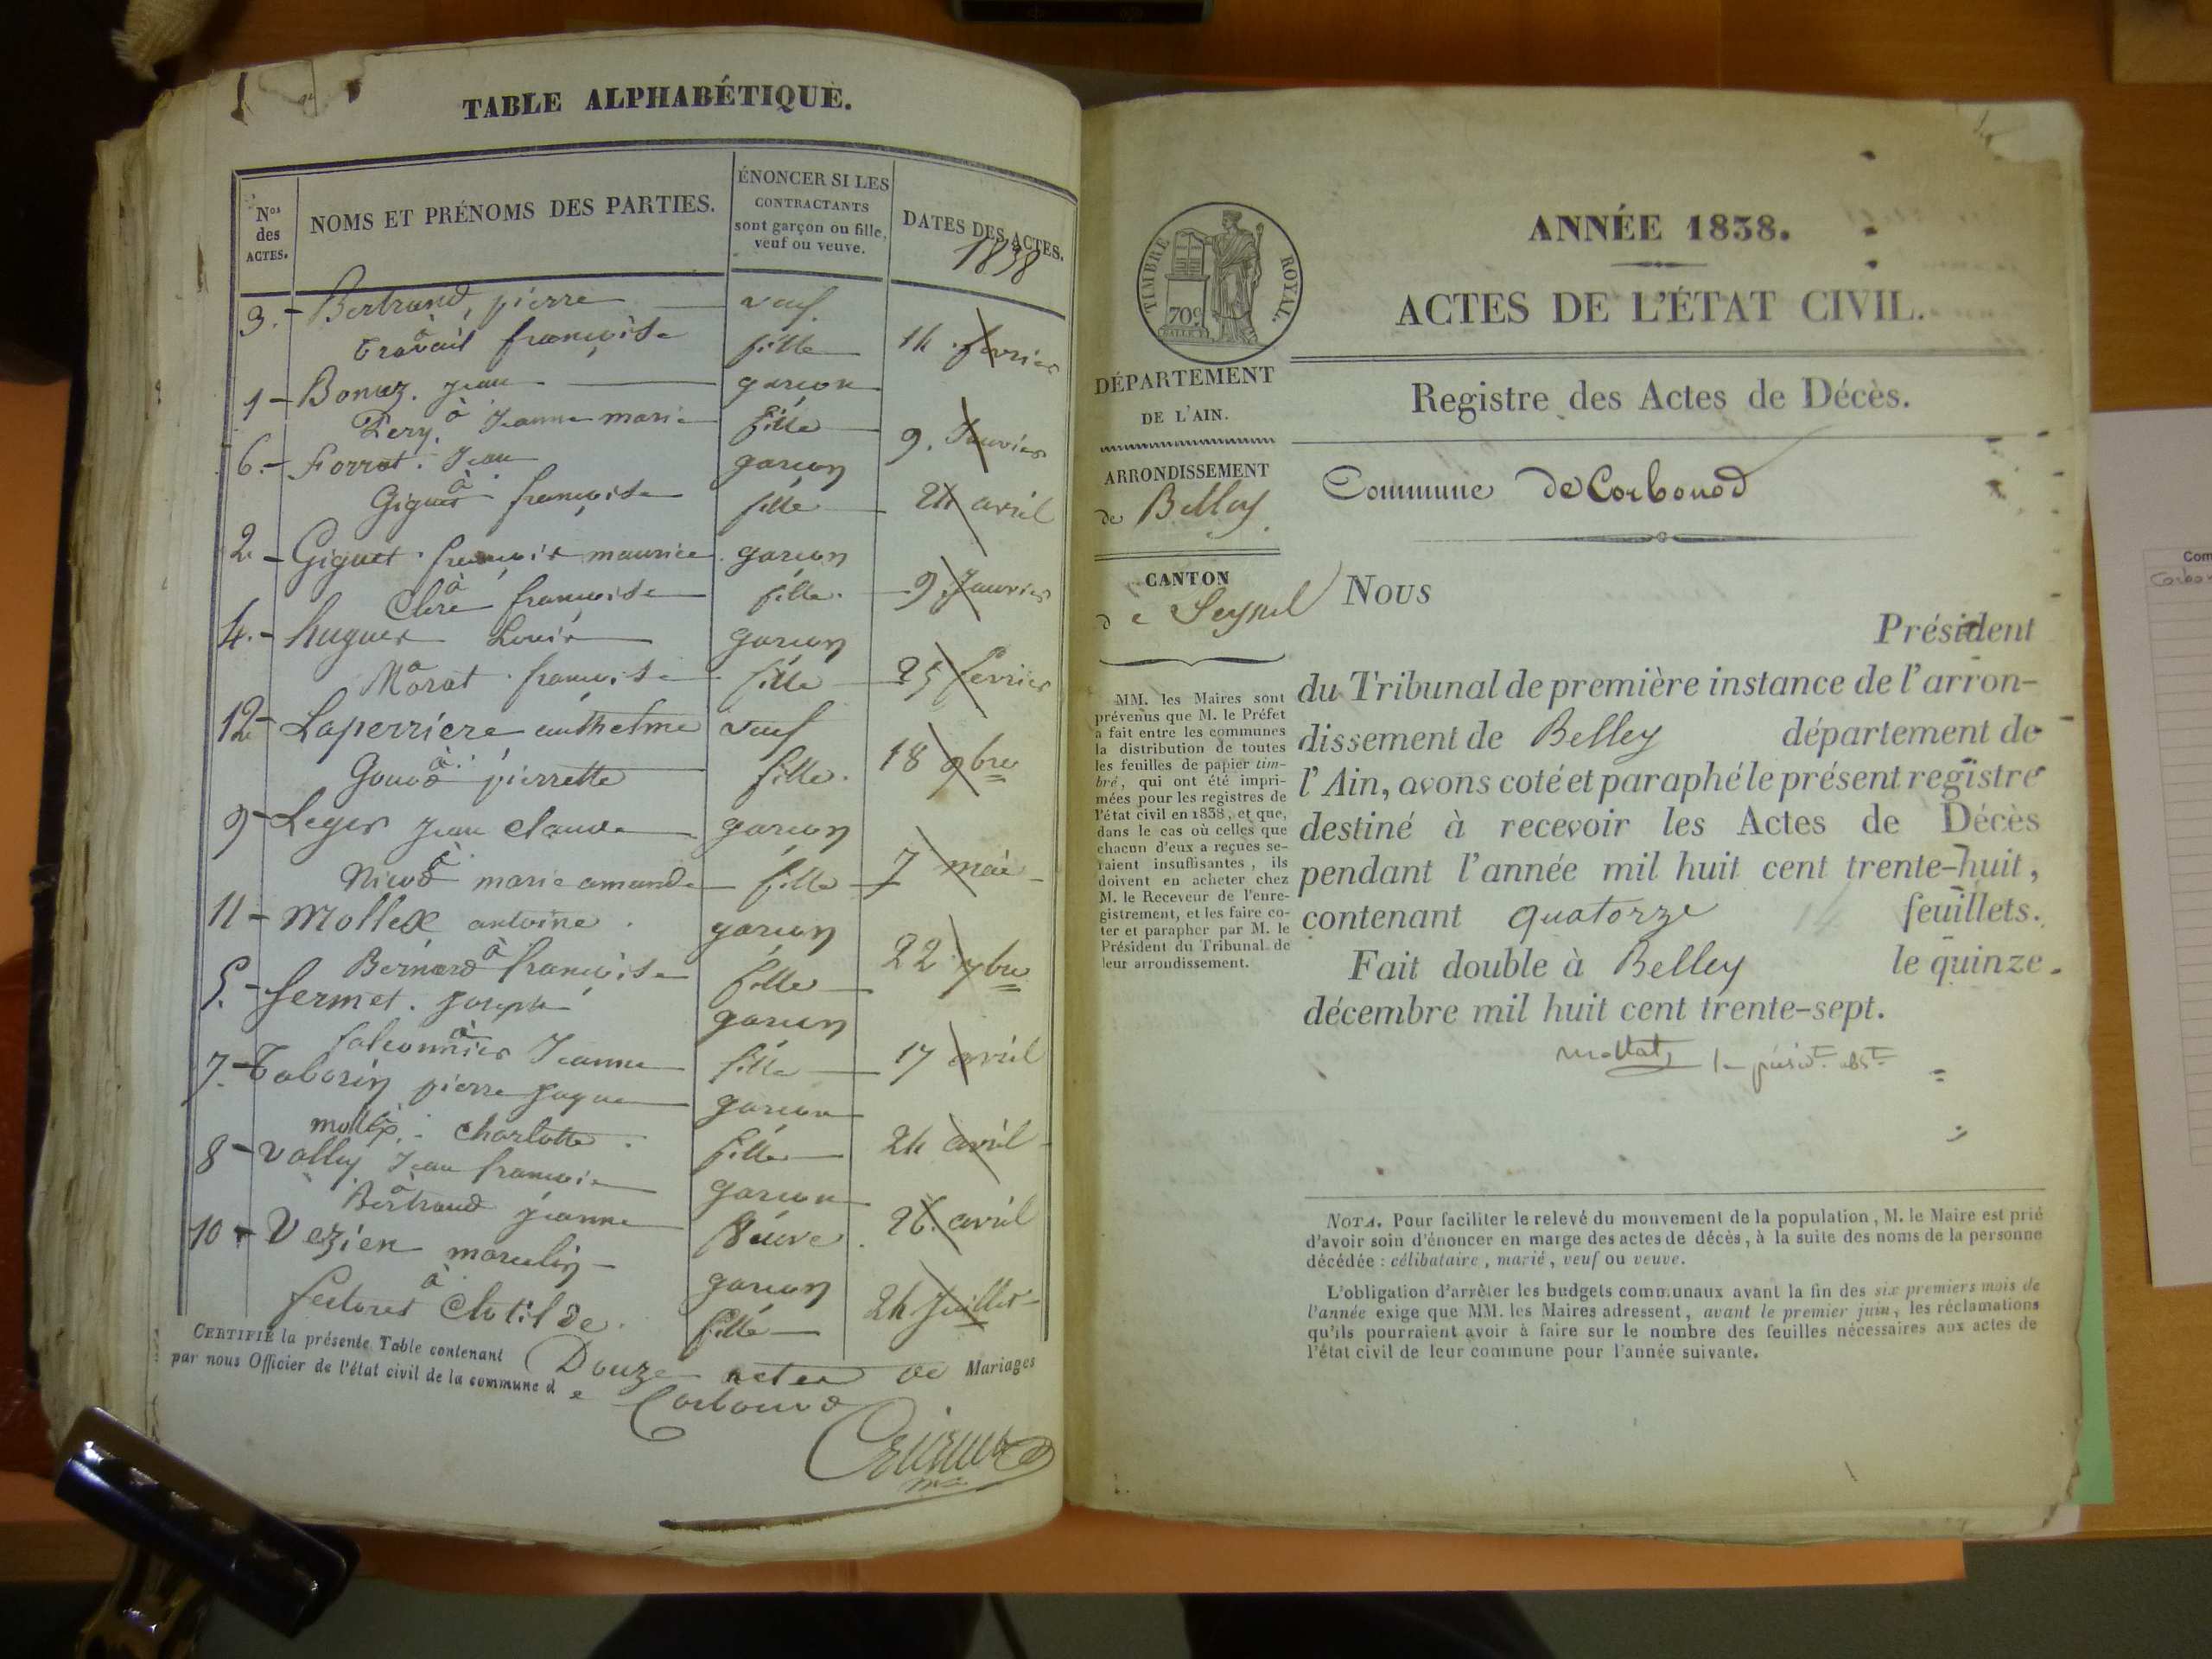 TABLE ALPHABÉTIQUE.
Nos des ACTES.
NOMS ET PRÉNOMS DES PARTIES.
ÉNONCER SI LES
CONTRACTANTS
sont garçon ou fille,
veuf ou veuve.
DATES DES ACTES.
1838
3. - Bertrand, pierre veuf.
à
travail françoise fille 14 fevrier
1 - Bonaz. Jean garçon
Pery. à Jeanne marie fille 9. Janvier
6. - Forrat. Jean garçon
à
Giguet françoise fille 24 avril
2 - Giguet françois maurice garçon
à
Clere françoise fille. 9 Janvier
4. - hugues Louis garçon
à
Morat françoise fille 25 fevrier
12 - Laperriere anthelme veuf
à
Gonod pierrette fille. 18 9bre
9 - Leger Jean claude garçon
à
Nicod marie amande fille 7 mai
11 - Mollex antoine garçon
Bernard à françoise fille 22 7bre
5. - fermet. Joseph garçon
à
falconnier Jeanne fille 17 avril
7. - Taborin pierre Jaque garçon
mollex à charlotte fille 24 avril
8 - Vally Jean françois garçon
à
Bertrand jeanne veuve 26. avril
10 - Vezien marcelin garçon
à
clotilde fille 24 Juillet
CERTIFIÉ la présente Table contenant Douze actes de Mariages
par nous Officier de l'état civil de la commune de Corbonod
TIMBRE ROYAL.
70c
ANNÉE 1838.
ACTES DE L'ÉTAT CIVIL.
DÉPARTEMENT
DE L'AIN.
Registre des Actes de Décès.
ARRONDISSEMENT
de Belley
Commune de Corbonod
CANTON
de Seyssel
Nous
Président
du Tribunal de première instance de l'arron-
dissement de Belley département de
l'Ain, avons coté et paraphé le présent registre
destiné à recevoir les Actes de Décès
pendant l'année mil huit cent trente-huit,
contenant quatorze 14 feuillets.
Fait double à Belley le quinze
décembre mil huit cent trente-sept.
MM. les Maires sont
prévenus que M. le Préfet
a fait entre les communes
la distribution de toutes
les feuilles de papier tim-
bré, qui ont été impri-
mées pour les registres de
l'état civil en 1838, et que,
dans le cas où celles que
chacun d'eux a reçues se-
raient insuffisantes, ils
doivent en acheter chez
M. le Receveur de l'enre-
gistrement, et les faire co-
ter et parapher par M. le
Président du Tribunal de
leur arrondissement.
NOTA. Pour faciliter le relevé du mouvement de la population, M. le Maire est prié
d'avoir soin d'énoncer en marge des actes de décès, à la suite des noms de la personne
décédée : célibataire, marié, veuf ou veuve.
L'obligation d'arrêter les budgets communaux avant la fin des six premiers mois de
l'année exige que MM. les Maires adressent, avant le premier juin, les réclamations
qu'ils pourraient avoir à faire sur le nombre des feuilles nécessaires aux actes de
l'état civil de leur commune pour l'année suivante.
Com